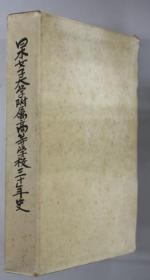 日本女子大学附属高等学校三十年史